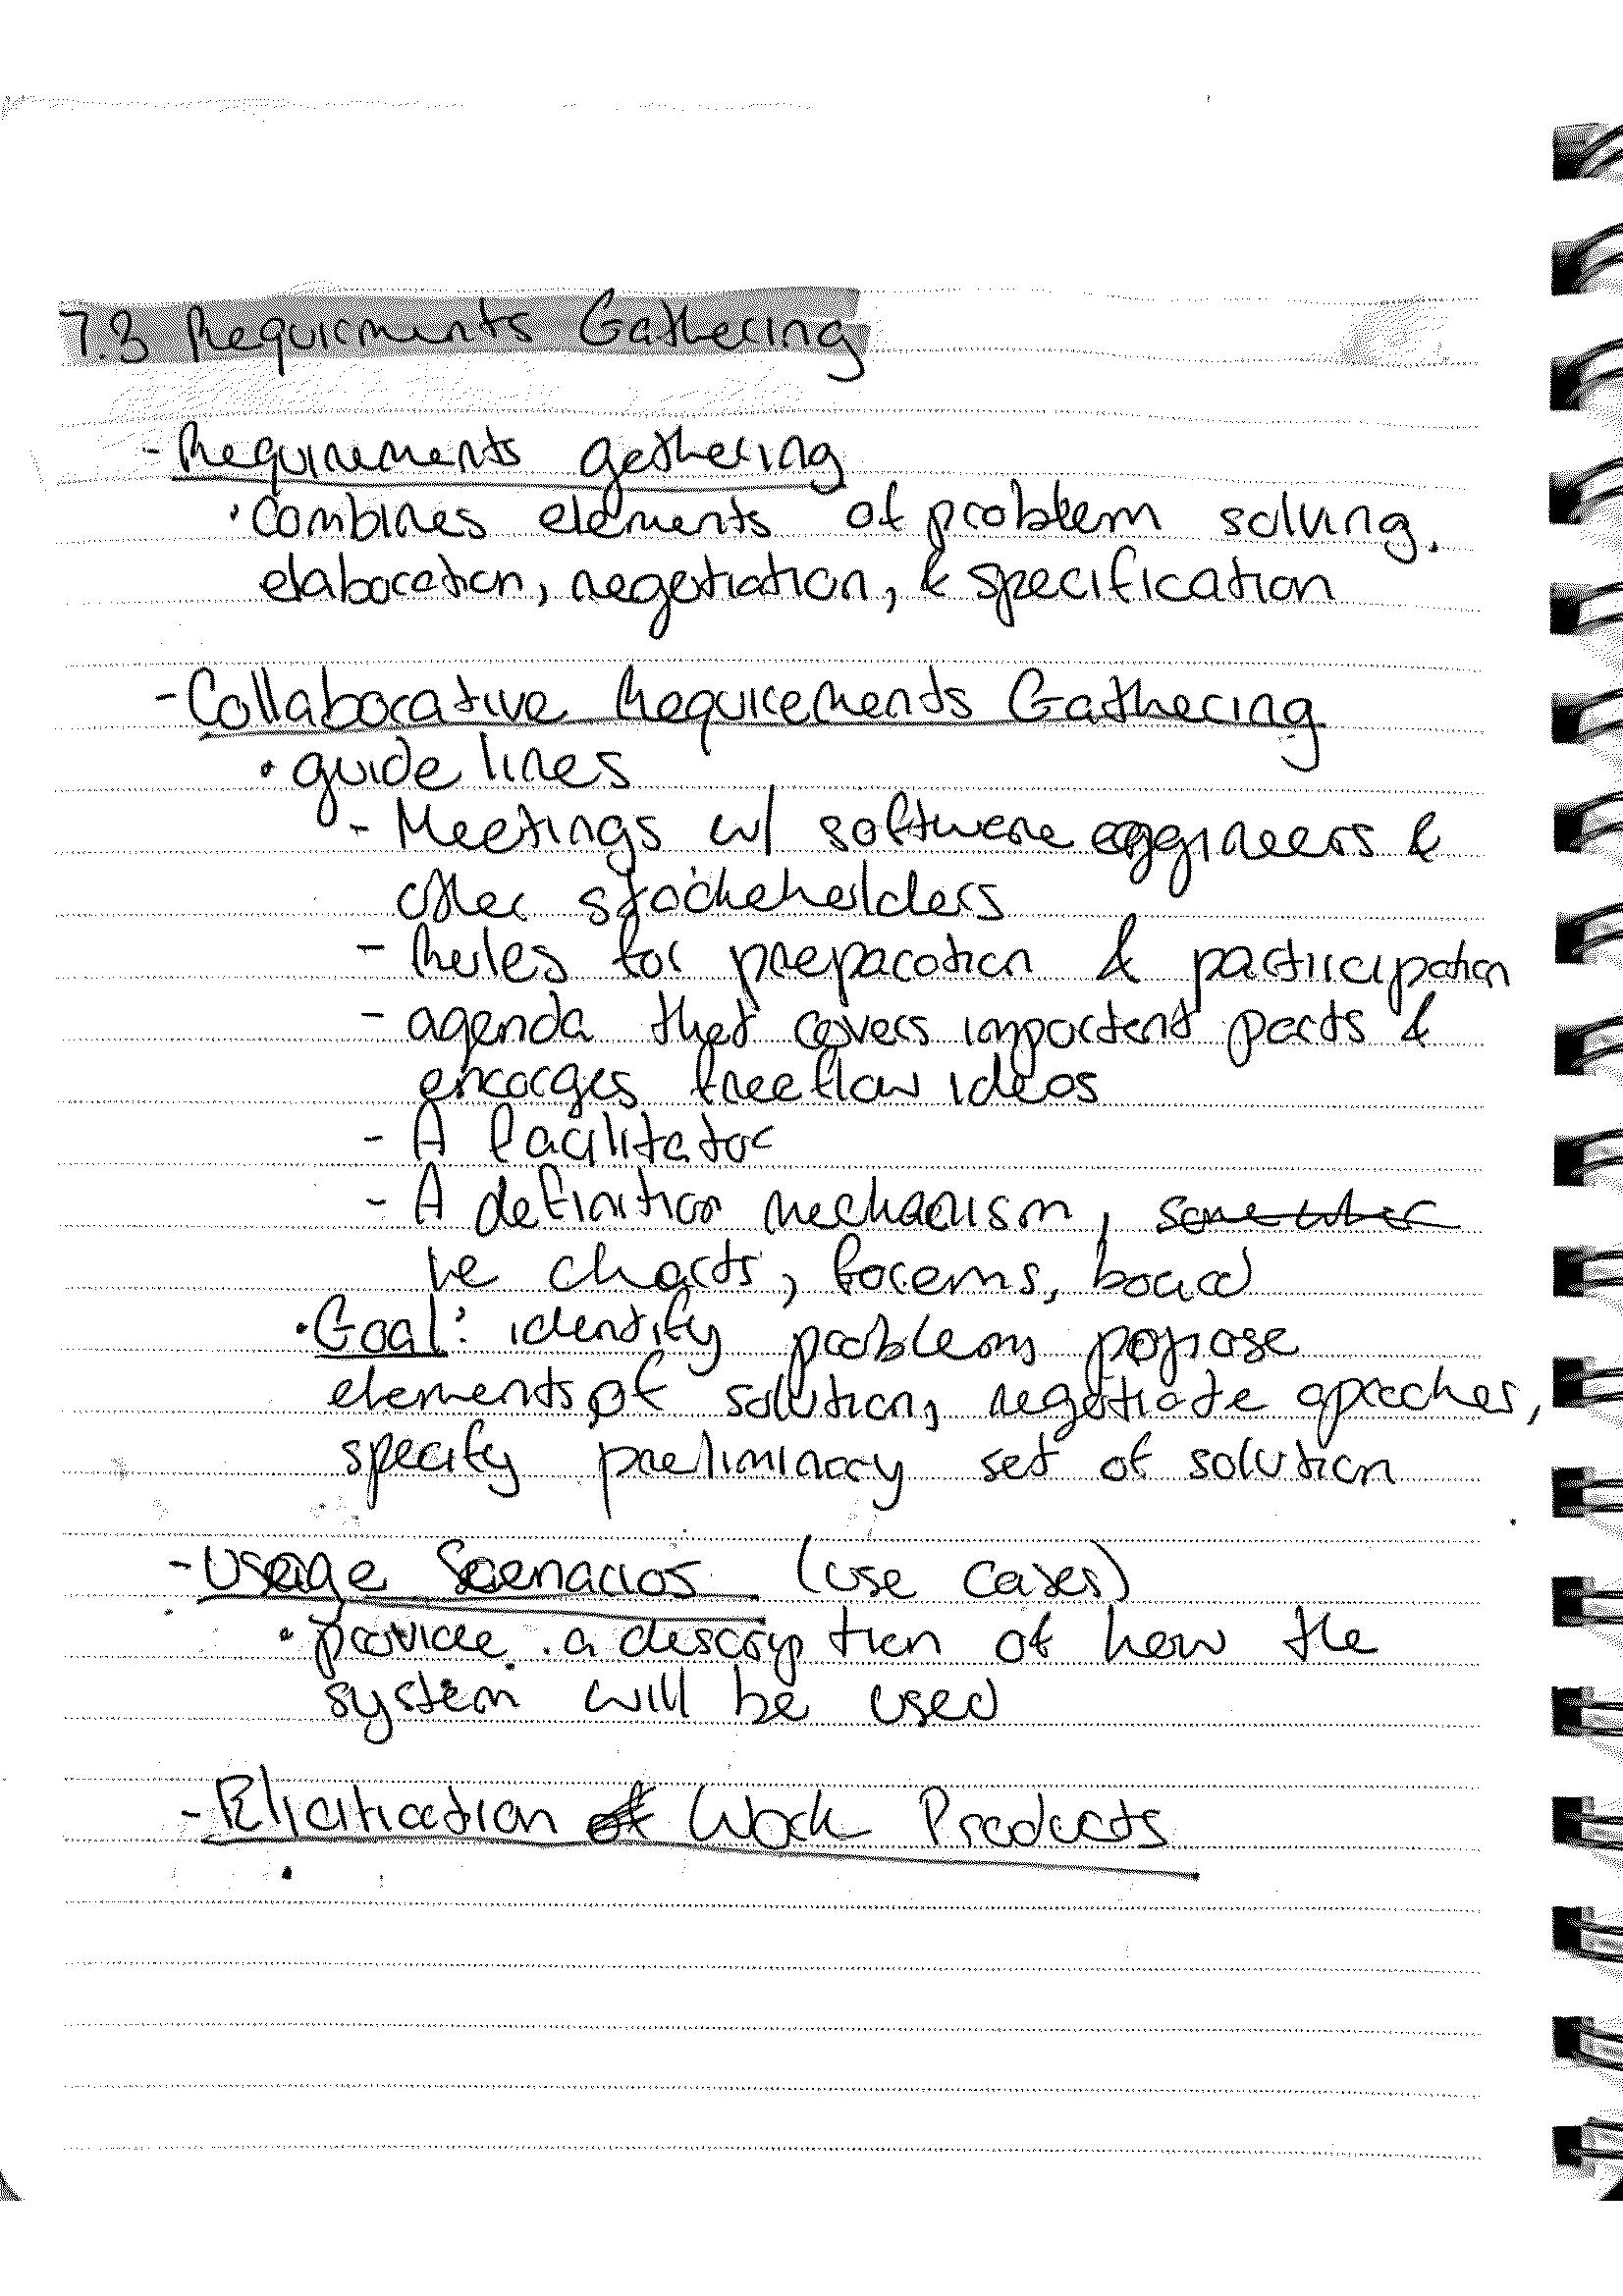 7.3 Requirments Gathering
- Requirements gathering
• Combines elements of problem solving,
elaboration, negotiation, & specification
- Collaborative Requirements Gathering
• guidelines
- Meetings w/ software eggineers &
other stockeholders
- Rules for preparation & participation
- agenda that covers important parts &
encorges freeflow ideos
- A facilitator
- A definition mechanism, some other
ie charts, forems, board
• Goal: identify problems, propose
elements of solution, negotiate aproaches,
specify preliminary set of solution
- Usage Scenarios (use cases)
• provide a description of how the
system will be used
- Elicitication of Work Products
•